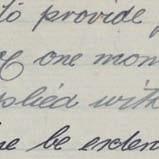 to provide
of one mon
pplied with
be exten